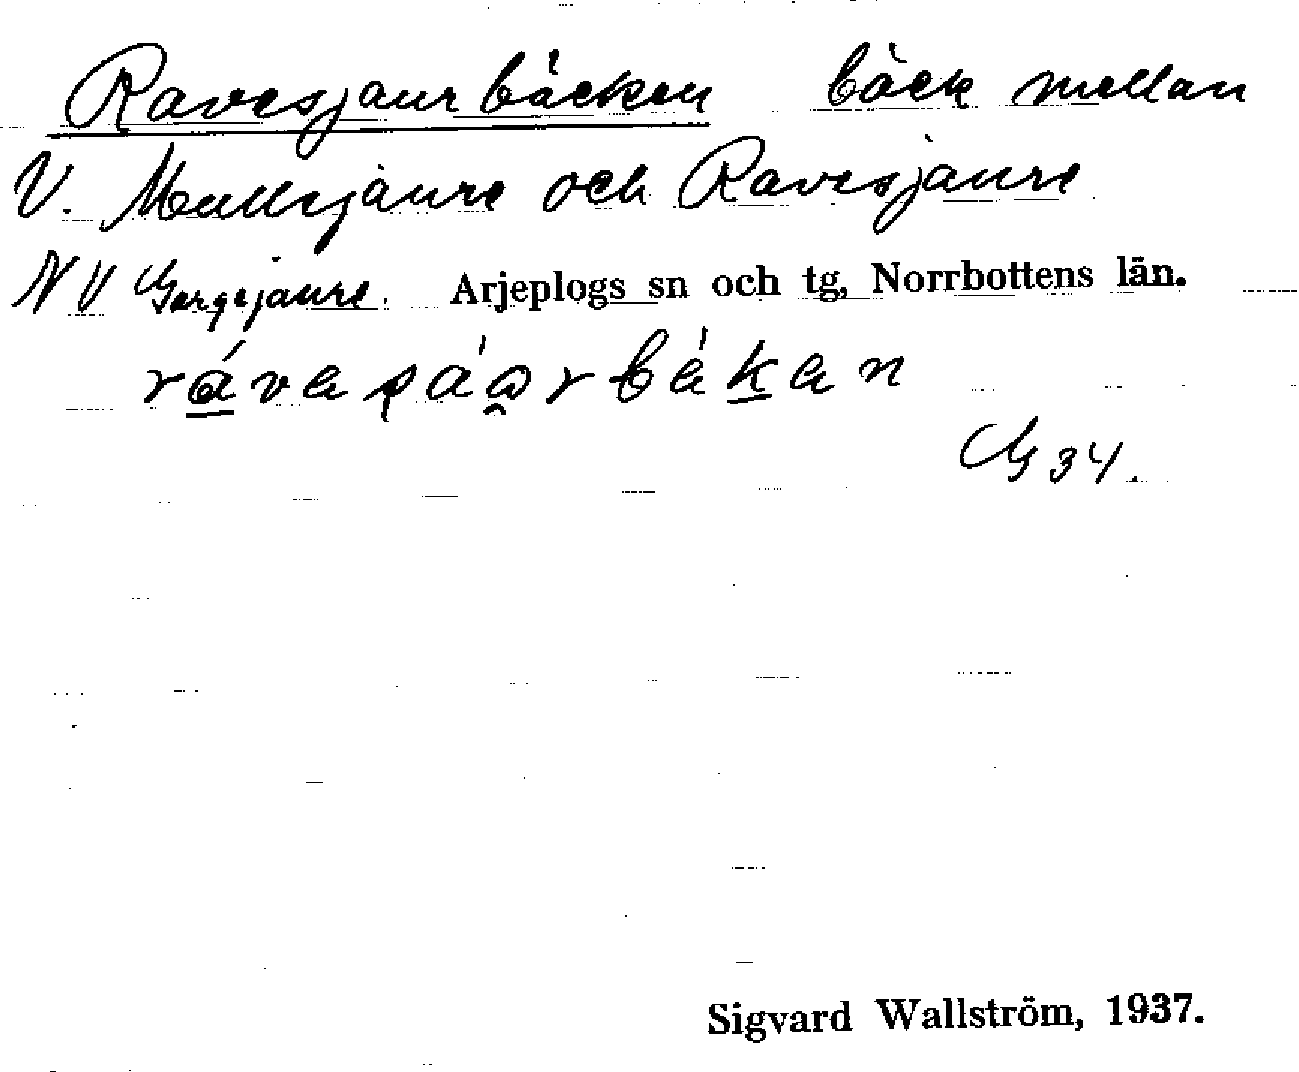 Ravesjaurbäcken bäck mellan
V. Mullesjaure och Ravesjaure
NV Gargejaure. Arjeplogs sn och tg, Norrbottens län.
G 34.
Sigvard Wallström, 1937.